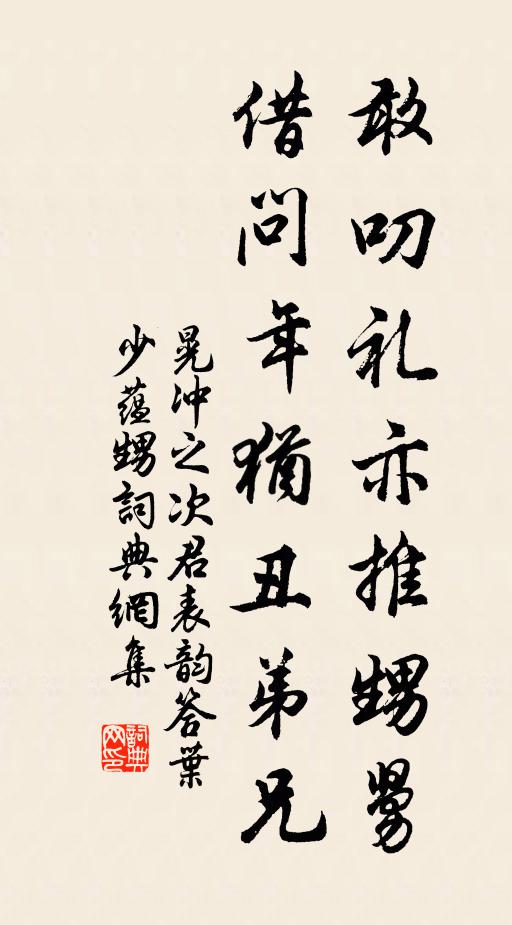 敢叨礼亦推甥舅
借问年犹丑弟兄
晁冲之次君表韵答葉
少蕴甥詞典網集
詞典网印